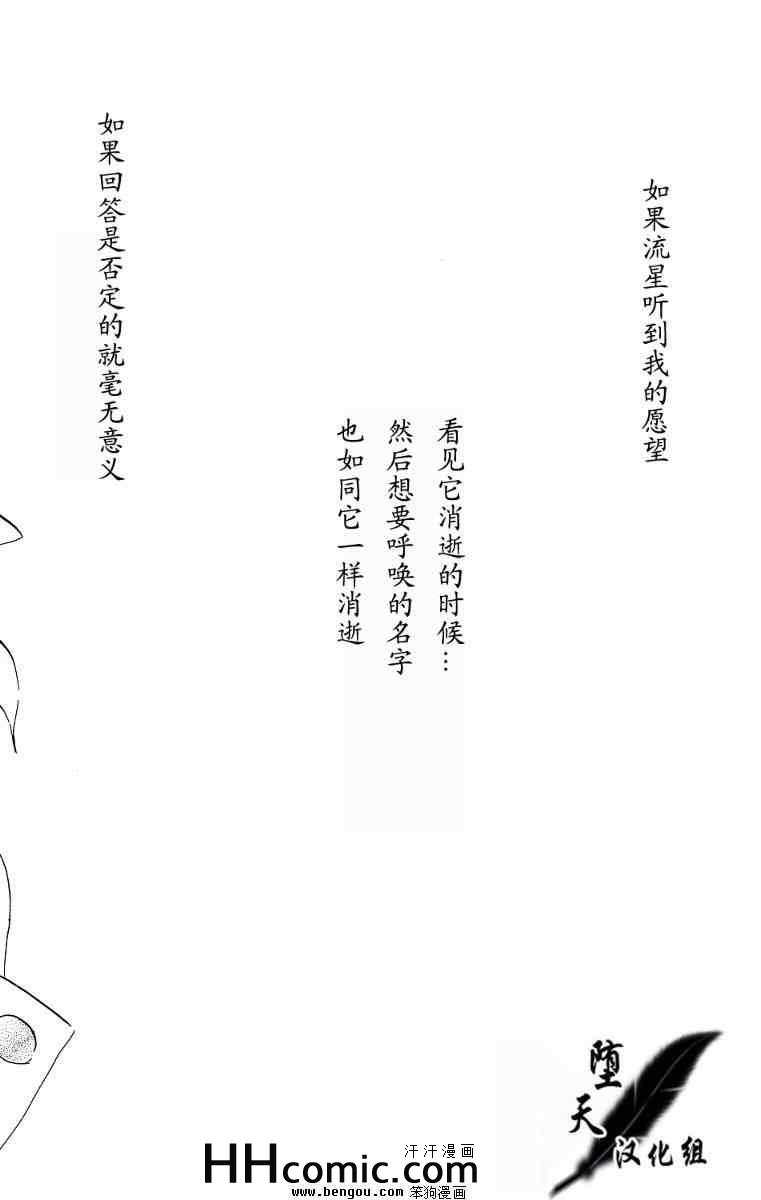 如果流星听到我的愿望
看见它消逝的时候…
然后想要呼唤的名字
也如同它一样消逝
如果回答是否定的就毫无意义
堕天
汉化组
汗汗漫画
HHcomic.com
www.bengou.com 笨狗漫画